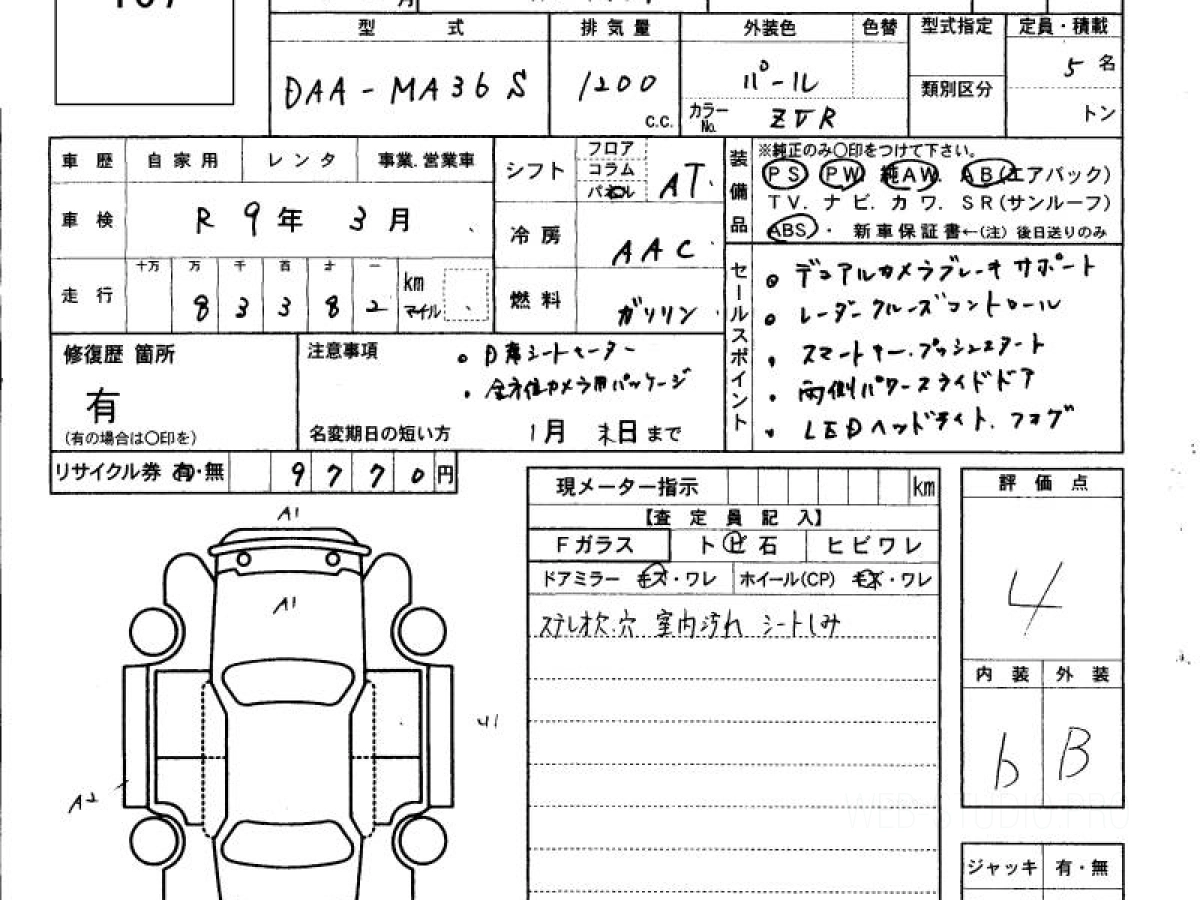 月
型 式 排気量 外装色 色替 型式指定 定員・積載
DAA-MA36S 1200 c.c. パール 5名
カラーNo. ZVR 類別区分 トン
車歴 自家用 レンタ 事業.営業車
車検 R9年 3月
走行 十万 万 千 百 十 一
8 3 3 8 2 km マイル
シフト フロア コラム パネル AT
冷房 AAC
燃料 ガソリン
装備品 ※純正のみ〇印をつけて下さい。
PS PW 純AW. AB(エアバック)
TV. ナビ. カワ. SR(サンルーフ)
ABS・ 新車保証書←(注) 後日送りのみ
セールスポイント
デュアルカメラブレーキサポート
レーダークルーズコントロール
スマートキー.プッシュスタート
両側パワースライドドア
LEDヘッドライト.フォグ
修復歴 箇所
有
(有の場合は〇印を)
注意事項 D席シートヒーター
全方位カメラ用パッケージ
名変期日の短い方 1月 末日まで
リサイクル券 有・無 9770円
現メーター指示 km
【査定員記入】
Fガラス トビ石 ヒビワレ
ドアミラー キズ・ワレ ホイール(CP) キズ・ワレ
ステレオ欠.穴 室内汚れ シートしみ
評価点
4
内装 外装
b B
ジャッキ 有・無
A1
A1
U1
A2
WEB STUDIO.PRO